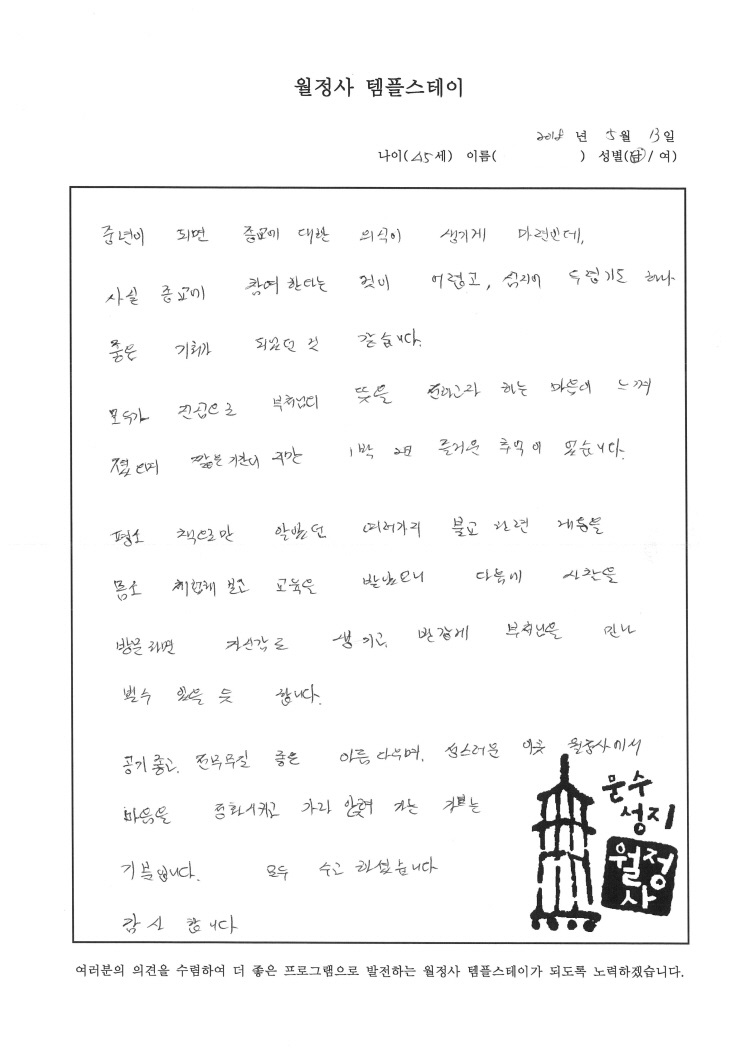 월정사 템플스테이
2018 년 5월 13일
나이(45세) 이름( ) 성별(남/여)
중년이 되면 종교에 대한 의식이 생기게 마련인데,
사실 종교에 참여 한다는 것이 어렵고, 심지어 두렵기도 하나
좋은 기회가 되었던 것 같습니다.
모두가 진심으로 부처님의 뜻을 전하고자 하는 마음이 느껴
졌으며 짧은 기간이 지만 1박 2일 즐거운 추억이 있습니다.
평소 책으로만 알았던 여러가지 불교 관련 내용을
몸소 체험해 보고 교육을 받았으니 다음에 사찰을
방문하면 자신감도 생기고, 반갑게 부처님을 만나
뵐수 있을 듯 합니다.
공기 좋고, 전나무길 좋은 아름다우며, 성스러운 이곳 월정사에서
마음을 정화시키고 가라 가는 기분는
기쁩입니다. 모두 수고 하셨습니다
감사 합니다
문수
성지
월정
사
여러분의 의견을 수렴하여 더 좋은 프로그램으로 발전하는 월정사 템플스테이가 되도록 노력하겠습니다.